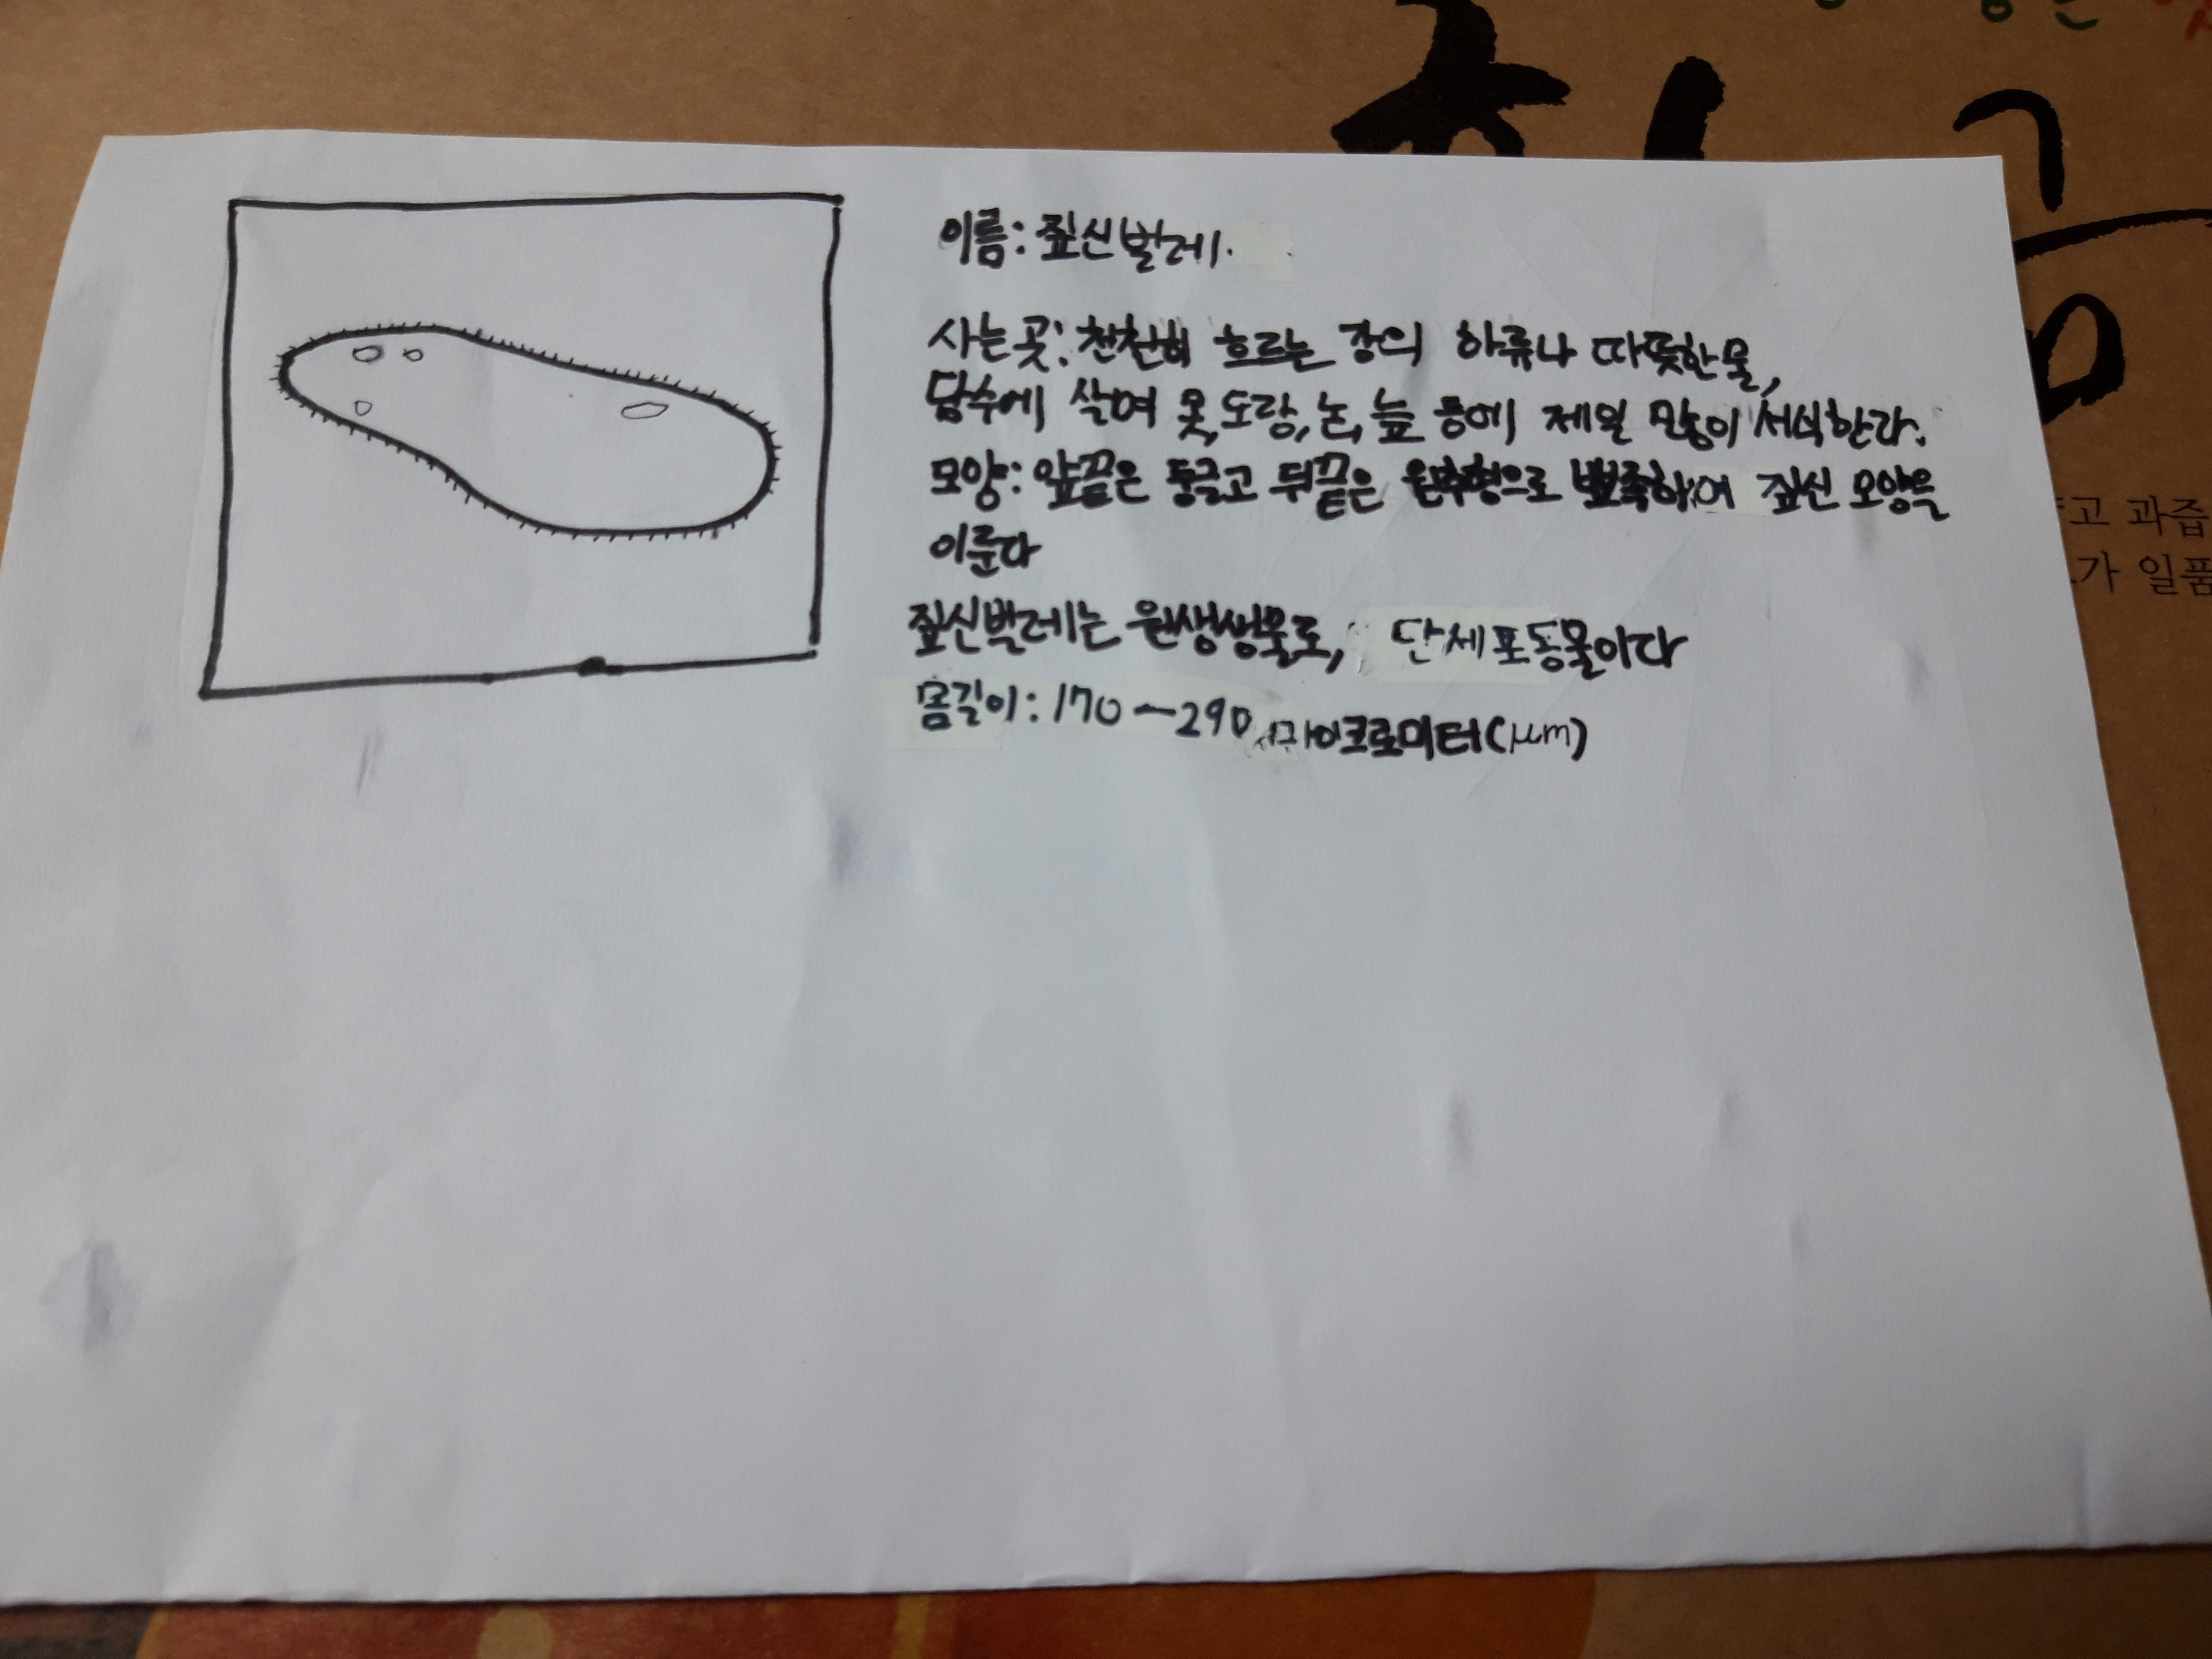 이름: 짚신벌레.
사는곳: 천천히 흐르는 강의 하류나 따뜻한물,
담수에 살며 못,도랑,논,늪 등에 제일 많이 서식한다.
모양: 앞끝은 둥글고 뒤끝은 원추형으로 뾰족하여 짚신 모양을
이룬다
짚신벌레는 원생생물로, 단세포동물이다
몸길이: 170~290 마이크로미터(μm)
고 과즙
가 일품